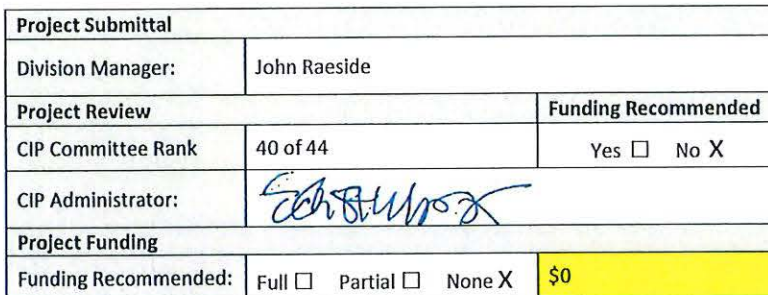 Project Submittal
Division Manager: John Raeside
Project Review Funding Recommended
CIP Committee Rank 40 of 44 Yes ☐ No X
CIP Administrator:
Project Funding
Funding Recommended: Full ☐ Partial ☐ None X $0